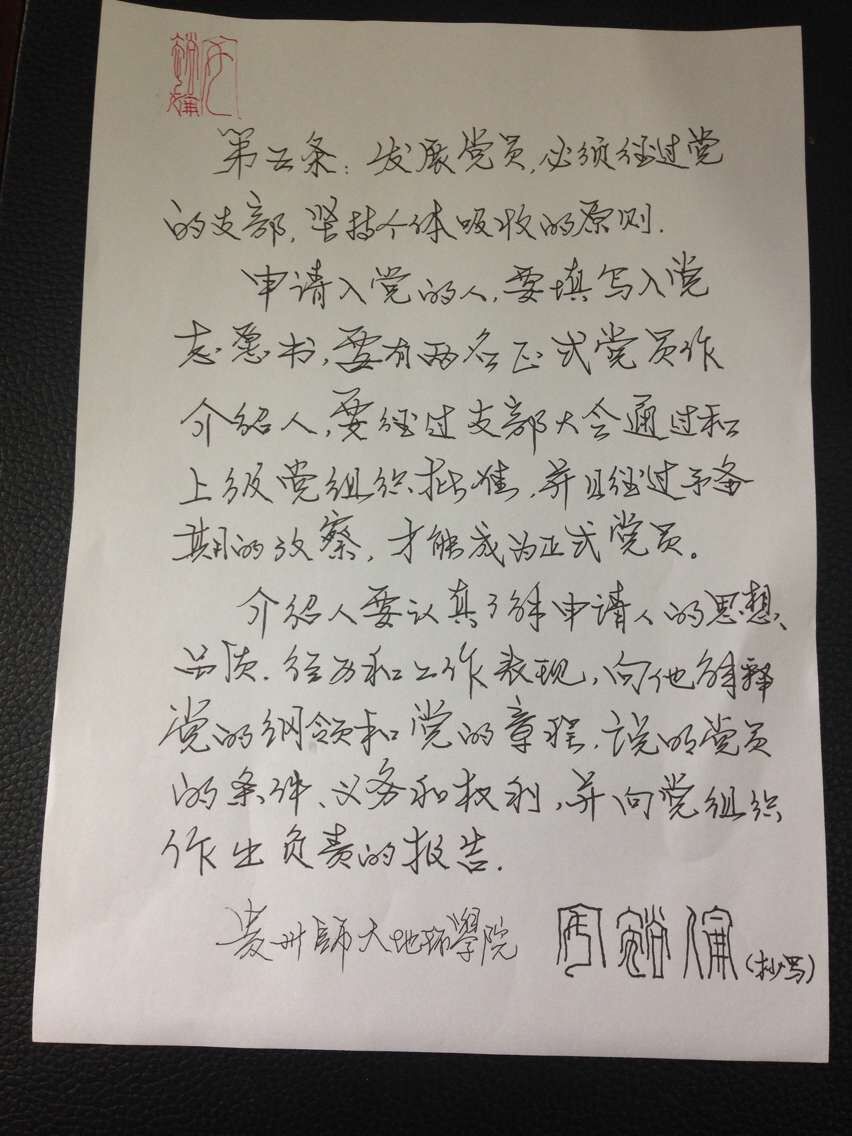 第五条：发展党员，必须经过党
的支部，坚持个体吸收的原则．
申请入党的人，要填写入党
志愿书，要有两名正式党员作
介绍人，要经过支部大会通过和
上级党组织批准，并且经过予备
期的考察，才能成为正式党员。
介绍人要认真了解申请人的思想、
品质．经历和工作表现，向他解释
党的纲领和党的章程，说明党员
的条件、义务和权利，并向党组织
作出负责的报告．
贵州師大地环學院
(抄写)